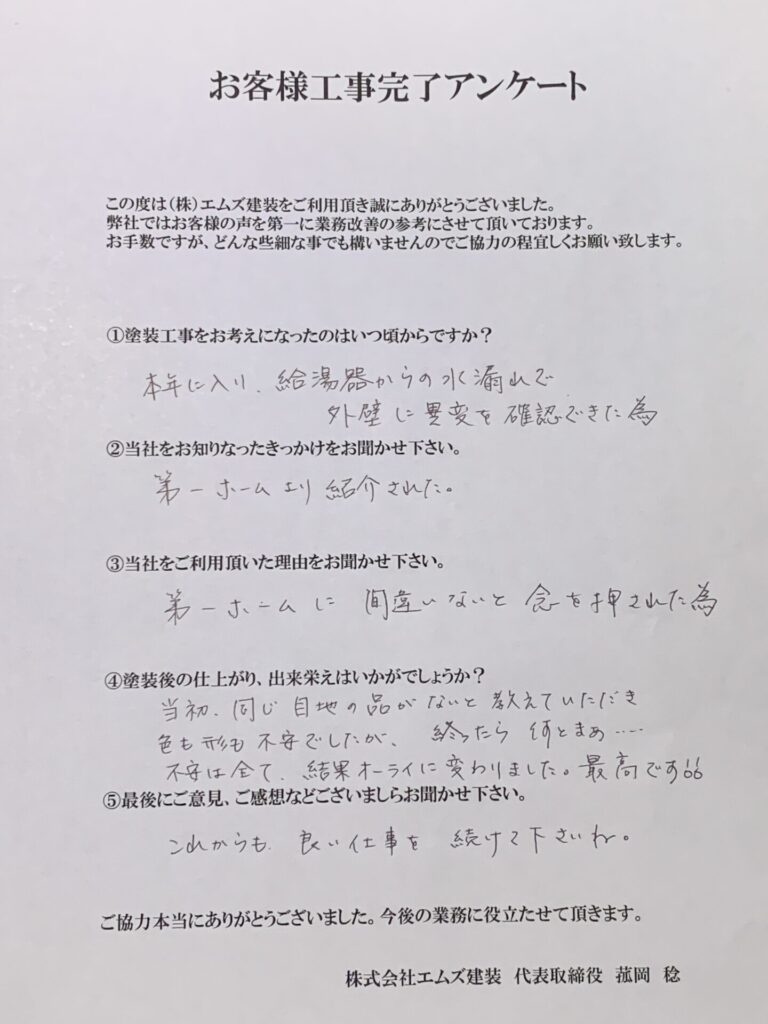 お客様工事完了アンケート
この度は(株)エムズ建装をご利用頂き誠にありがとうございました。
弊社ではお客様の声を第一に業務改善の参考にさせて頂いております。
お手数ですが、どんな些細な事でも構いませんのでご協力の程宜しくお願い致します。
①塗装工事をお考えになったのはいつ頃からですか?
本年に入り、給湯器からの水漏れで
外壁に異変を確認できた為
②当社をお知りなったきっかけをお聞かせ下さい。
第一ホームより紹介された。
③当社をご利用頂いた理由をお聞かせ下さい。
第一ホームに間違いないと念を押された為
④塗装後の仕上がり、出来栄えはいかがでしょうか?
当初、同じ目地の品がないと教えていただき
色も形も不安でしたが、終ったら何とまぁ……
不安は全て、結果オーライに変わりました。最高です!!
⑤最後にご意見、ご感想などございましらお聞かせ下さい。
これからも、良い仕事を続けて下さいね。
ご協力本当にありがとうございました。今後の業務に役立たせて頂きます。
株式会社エムズ建装 代表取締役 菰岡 稔